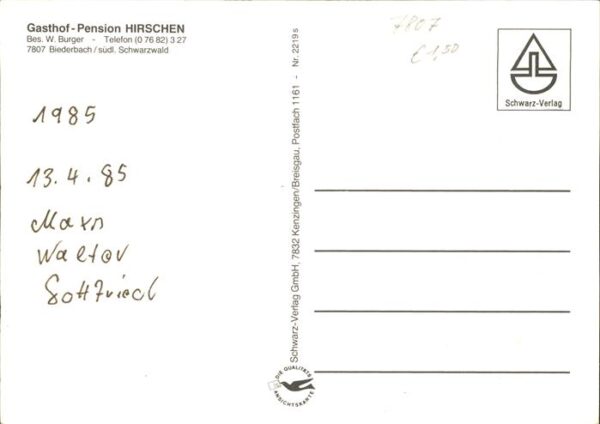 Gasthof-Pension HIRSCHEN
Bes. W. Burger - Telefon (0 76 82) 3 27
7807 Biederbach/südl. Schwarzwald
7807
€ 1,50
Schwarz-Verlag
1985
13.4.85
Walter
Gottfried
Schwarz-Verlag GmbH, 7832 Kenzingen/Breisgau, Postfach 1161 - Nr. 2219 s
DIE QUALITÄTS
ANSICHTSKARTE